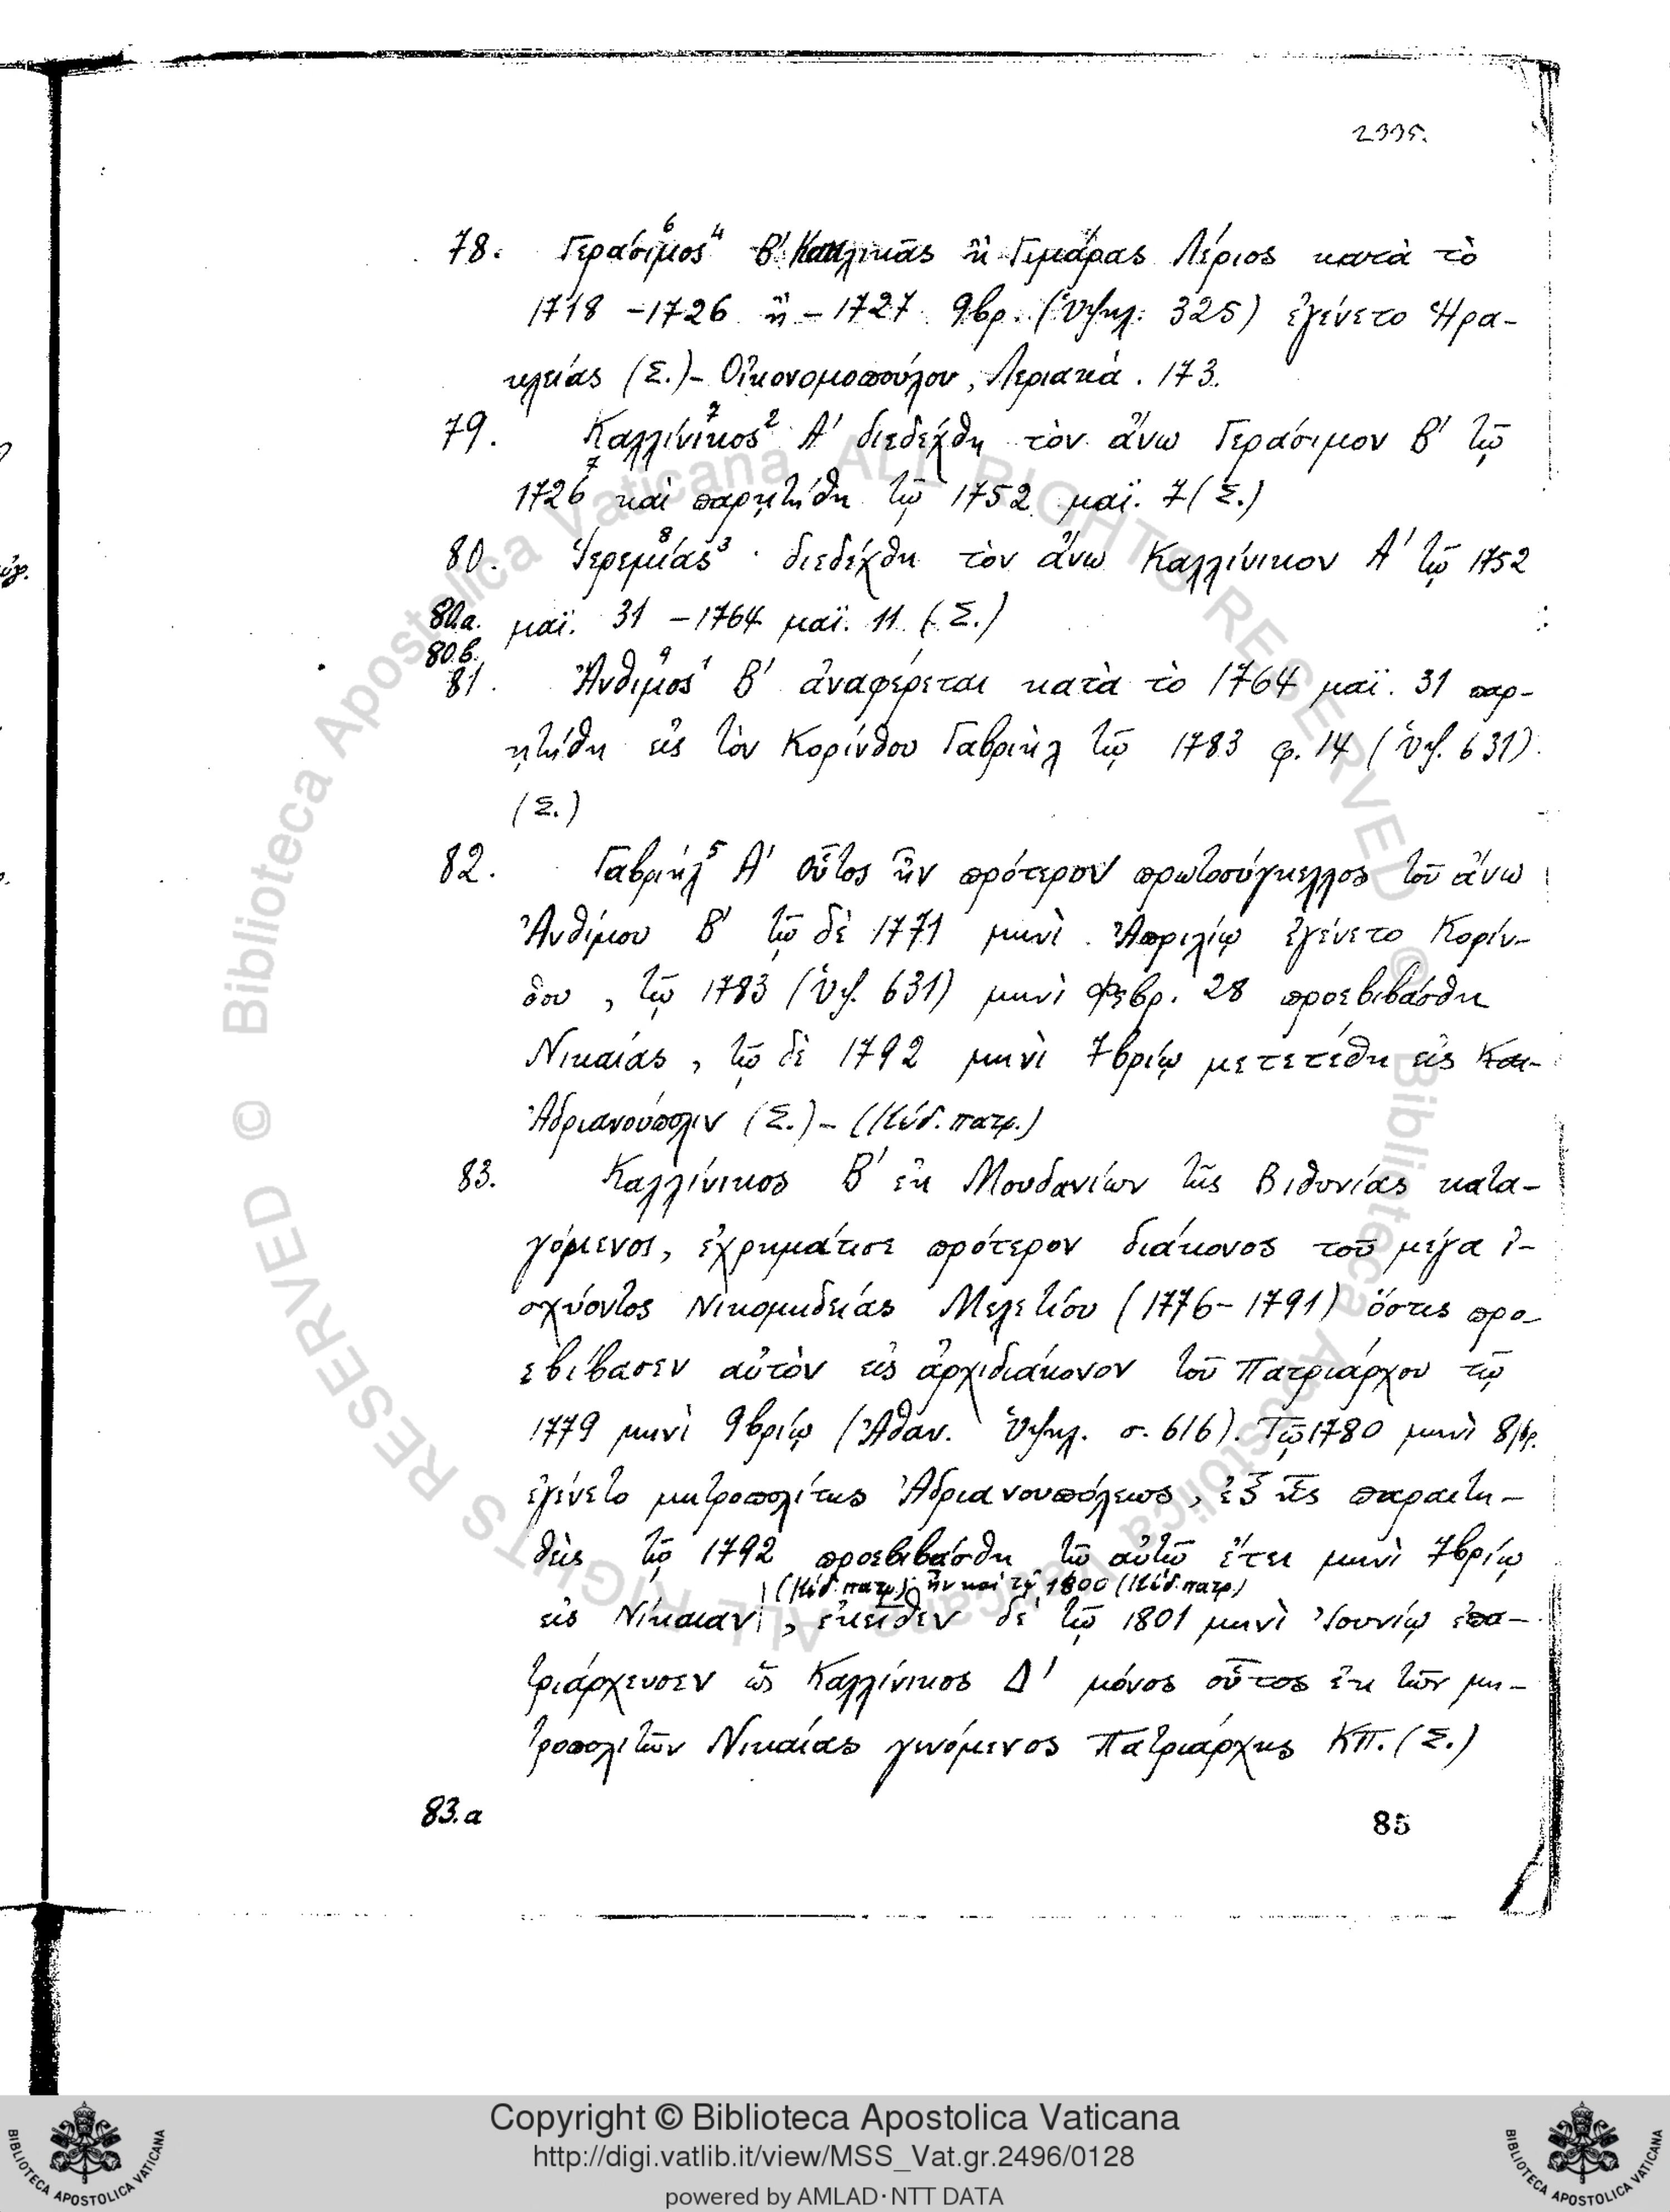 2335.
78. Γεράσιμος⁶ ⁴ Β' Κακλικᾶς ἢ Γιμάρας Λέριος κατὰ τὸ
1718 -1726 ἢ -1727 9βρ. (Ὑψηλ: 325) ἐγένετο Ἡρα-
κλείας (Σ.)- Οἰκονομοπούλου, Λεριακά. 173.
79. Καλλίνικος⁷ ² Α' διεδέχθη τὸν ἄνω Γεράσιμον Β' τῷ
1726⁷ καὶ παρῃτήθη τῷ 1752 μαΐ. 7 (Σ.)
80. Ἱερεμίας⁸ ³ · διεδέχθη τὸν ἄνω Καλλίνικον Α' τῷ 1752
80.α. μαΐ. 31 -1764 μαΐ. 11 (Σ.)
80.β.
81. Ἄνθιμος⁹ ¹ Β' ἀναφέρεται κατὰ τὸ 1764 μαΐ. 31 παρ-
ῃτήθη εἰς τὸν Κορίνθου Γαβριὴλ τῷ 1783 φ. 14 (ὑψ. 631)
(Σ.)
82. Γαβριήλ⁵ Α' οὗτος ἦν πρότερον πρωτοσύγκελλος τοῦ ἄνω
Ἀνθίμου Β' τῷ δὲ 1771 μηνὶ Ἀπριλίῳ ἐγένετο Κορίν-
θου, τῷ 1783 (ὑψ. 631) μηνὶ Φεβρ. 28 προεβιβάσθη
Νικαίας, τῷ δὲ 1792 μηνὶ 7βρίῳ μετετέθη εἰς Και-
Ἀδριανούπολιν (Σ.)- (Κώδ. πατρ.)
83. Καλλίνικος Β' ἐκ Μουδανίων τῆς Βιθυνίας κατα-
γόμενος, ἐχρημάτισε πρότερον διάκονος τοῦ μέγα ἰ-
σχύοντος Νικομηδείας Μελετίου (1776-1791) ὅστις προ-
εβίβασεν αὐτὸν εἰς ἀρχιδιάκονον τοῦ Πατριάρχου τῷ
1779 μηνὶ 9βρίῳ (Ἀθαν. Ὑψηλ. σ. 616). Τῷ 1780 μηνὶ 8βρ.
ἐγένετο μητροπολίτης Ἀδριανουπόλεως, ἐξ ἧς παραιτη-
θεὶς τῷ 1792 προεβιβάσθη τῷ αὐτῷ ἔτει μηνὶ 7βρίῳ
(Κώδ. πατρ.) ἦν καὶ τῷ 1800 (Κώδ. πατρ.)
εἰς Νίκαιαν, ἐκεῖθεν δὲ τῷ 1801 μηνὶ Ἰουνίῳ ἐπα-
τριάρχευσεν ὡς Καλλίνικος Δ' μόνος οὗτος ἐκ τῶν μη-
τροπολιτῶν Νικαίας γενόμενος Πατριάρχης ΚΠ. (Σ.)
83.α
85
© Biblioteca Apostolica Vaticana ALL RIGHTS RESERVED © Biblioteca Apostolica Vaticana ALL RIGHTS RESERVED
Copyright © Biblioteca Apostolica Vaticana
http://digi.vatlib.it/view/MSS_Vat.gr.2496/0128
powered by AMLAD·NTT DATA
BIBLIOTECA APOSTOLICA VATICANA
BIBLIOTECA APOSTOLICA VATICANA